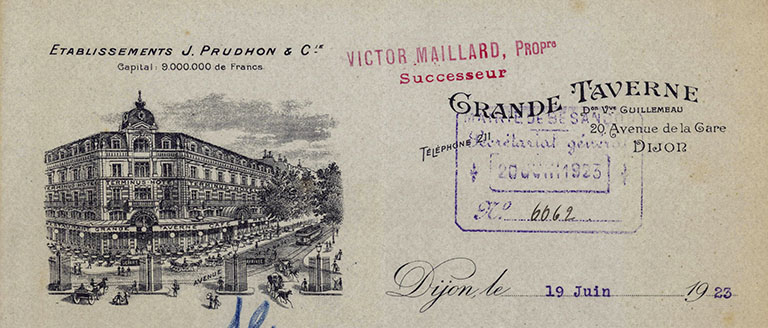 ETABLISSEMENTS J. PRUDHON & Cie
Capital: 9.000.000 de Francs.
VICTOR MAILLARD, Propre
Successeur
GRANDE TAVERNE
Don Vve GUILLEMEAU
TÉLÉPHONE 211
20, Avenue de la Gare
DIJON
MAIRIE DE BESANÇON
Secrétariat général
20 JUIN 1923
No. 6062
TERMINUS HOTEL
GRANDE TAVERNE
AVENUE
Dijon, le 19 Juin 1923